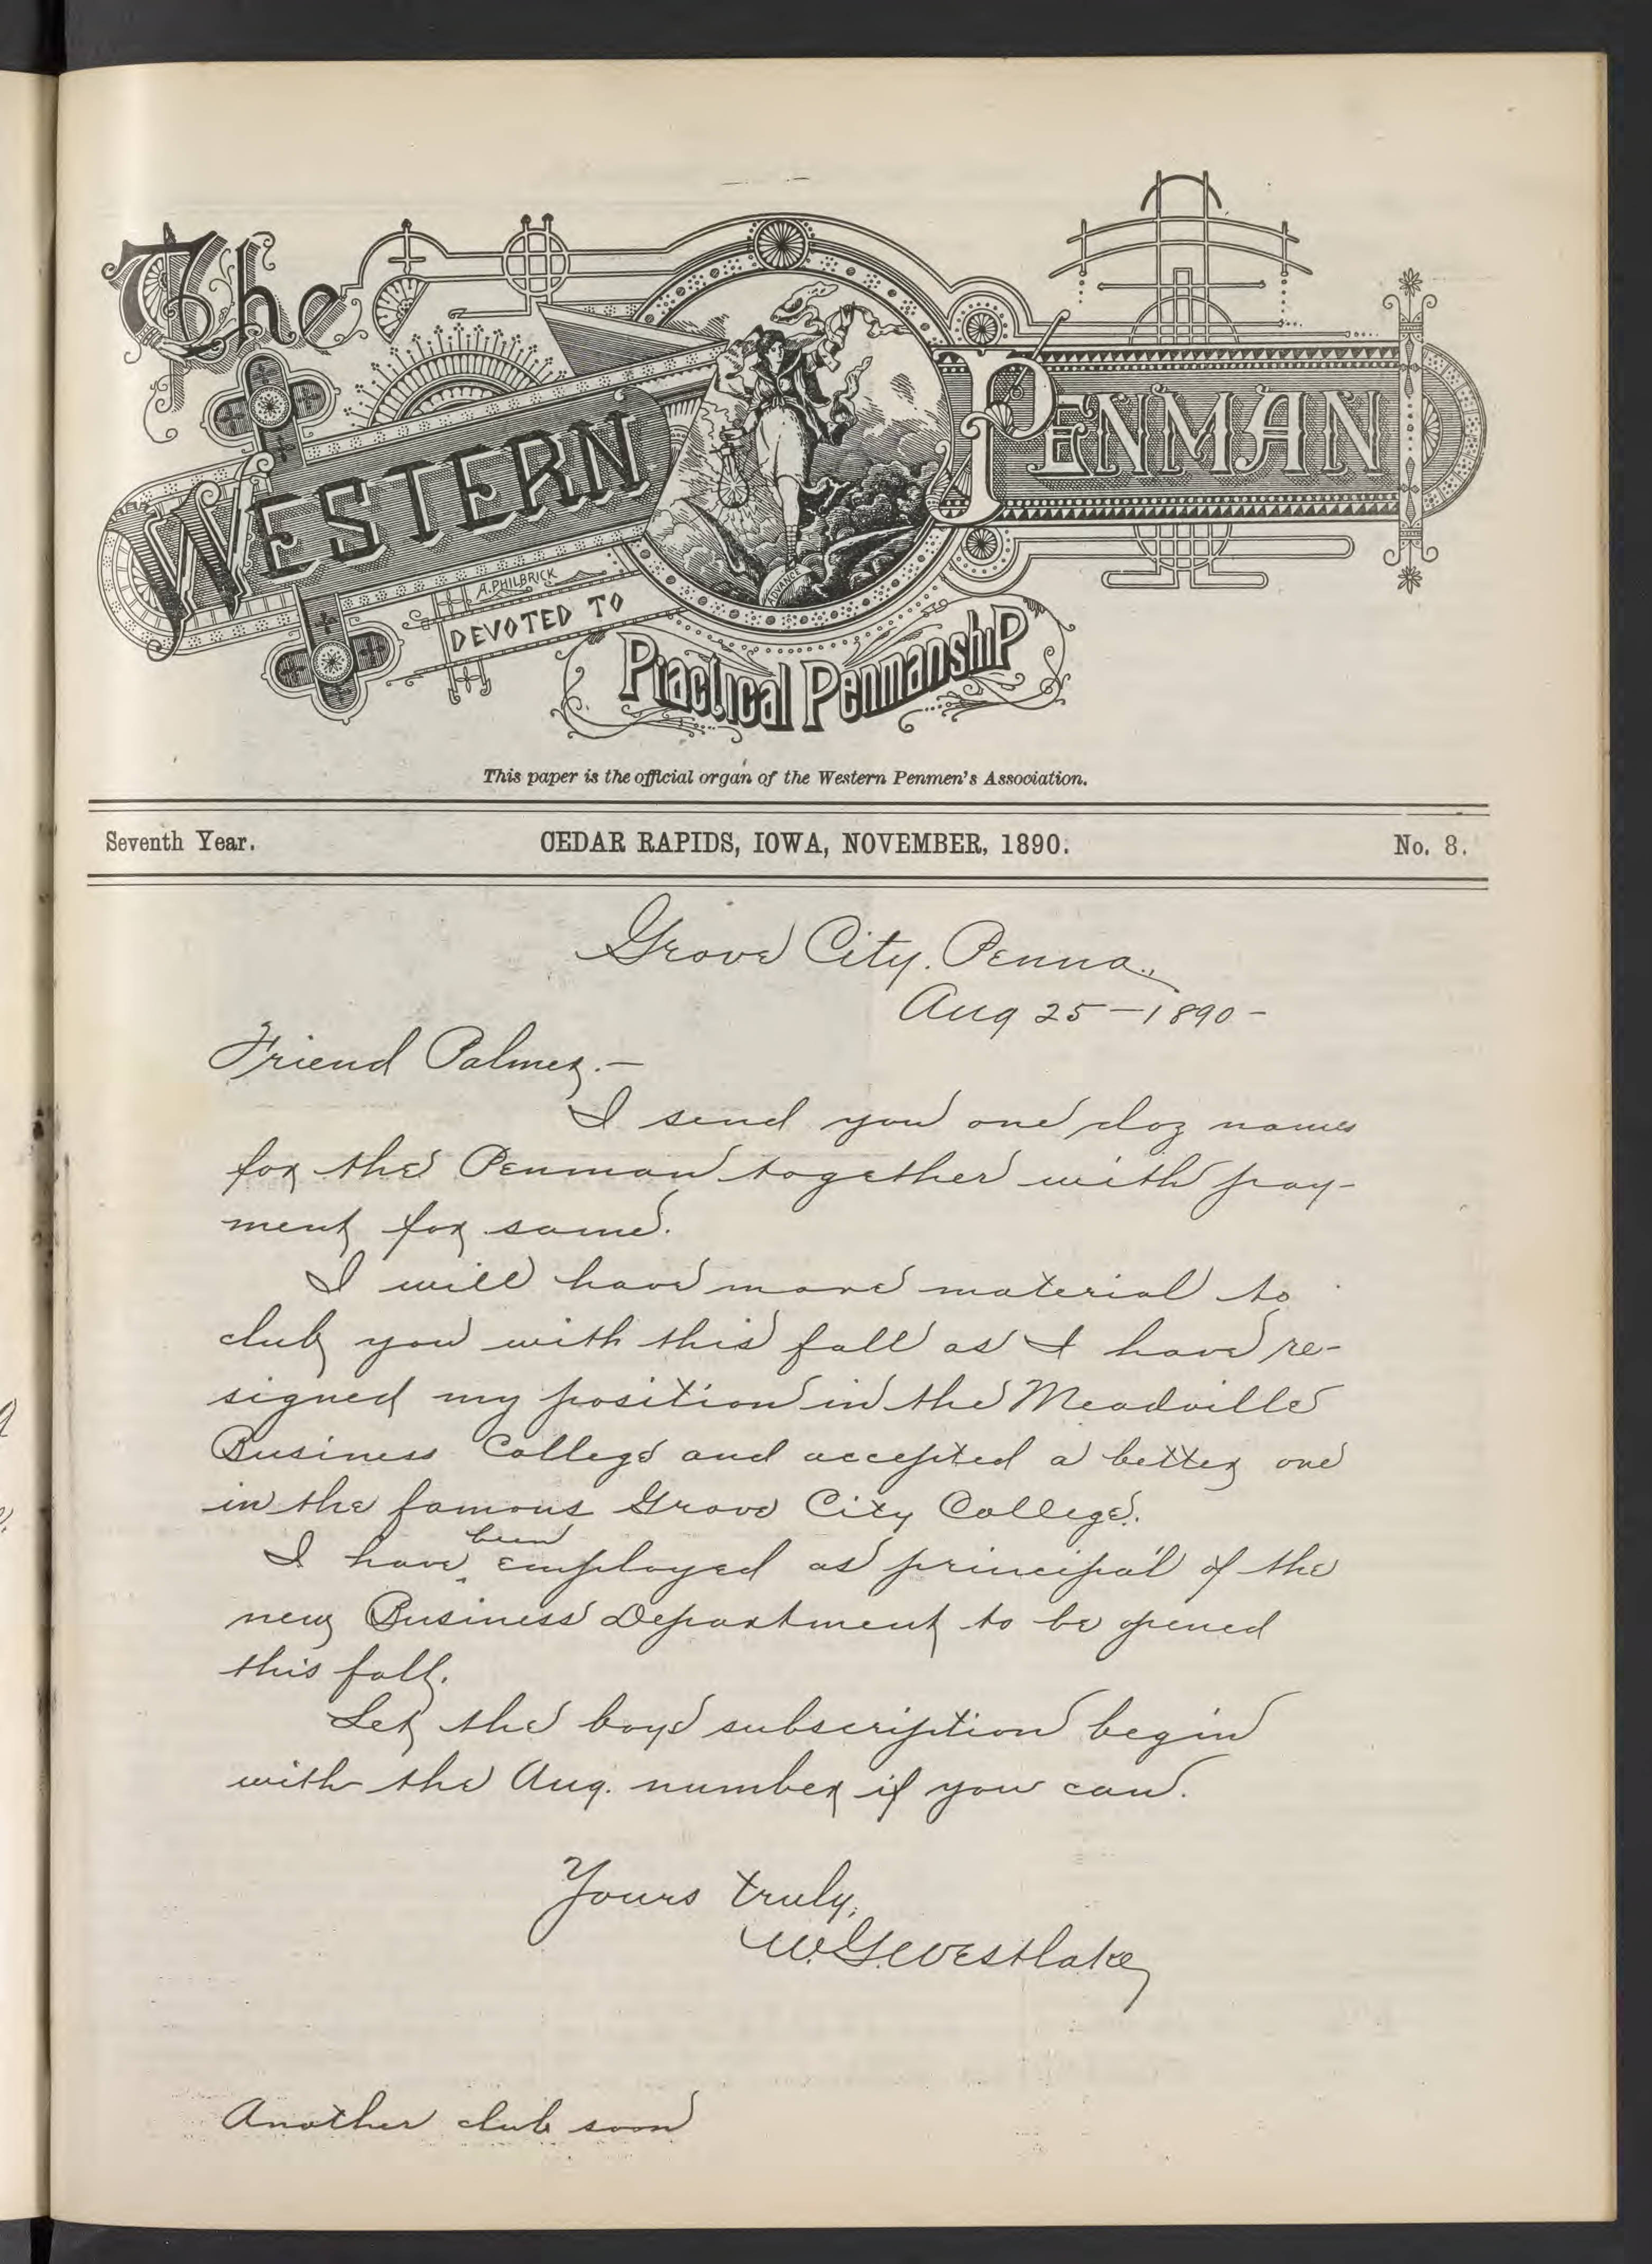 The
WESTERN PENMAN
A. PHILBRICK
ADVANCE
DEVOTED TO
Practical Penmanship
This paper is the official organ of the Western Penmen's Association.
Seventh Year. CEDAR RAPIDS, IOWA, NOVEMBER, 1890. No. 8.
Grove City. Penna.,
Aug 25 - 1890 -
Friend Palmer. -
I send you one doz names
for the Penman together with pay-
ment for same.
I will have more material to
club you with this fall as I have re-
signed my position in the Meadville
Business College and accepted a better one
in the famous Grove City College.
I have been employed as principal of the
new Business Department to be opened
this fall.
Let the boys subscription begin
with the Aug. number if you can.
Yours truly,
W. G. Westlake
Another club soon